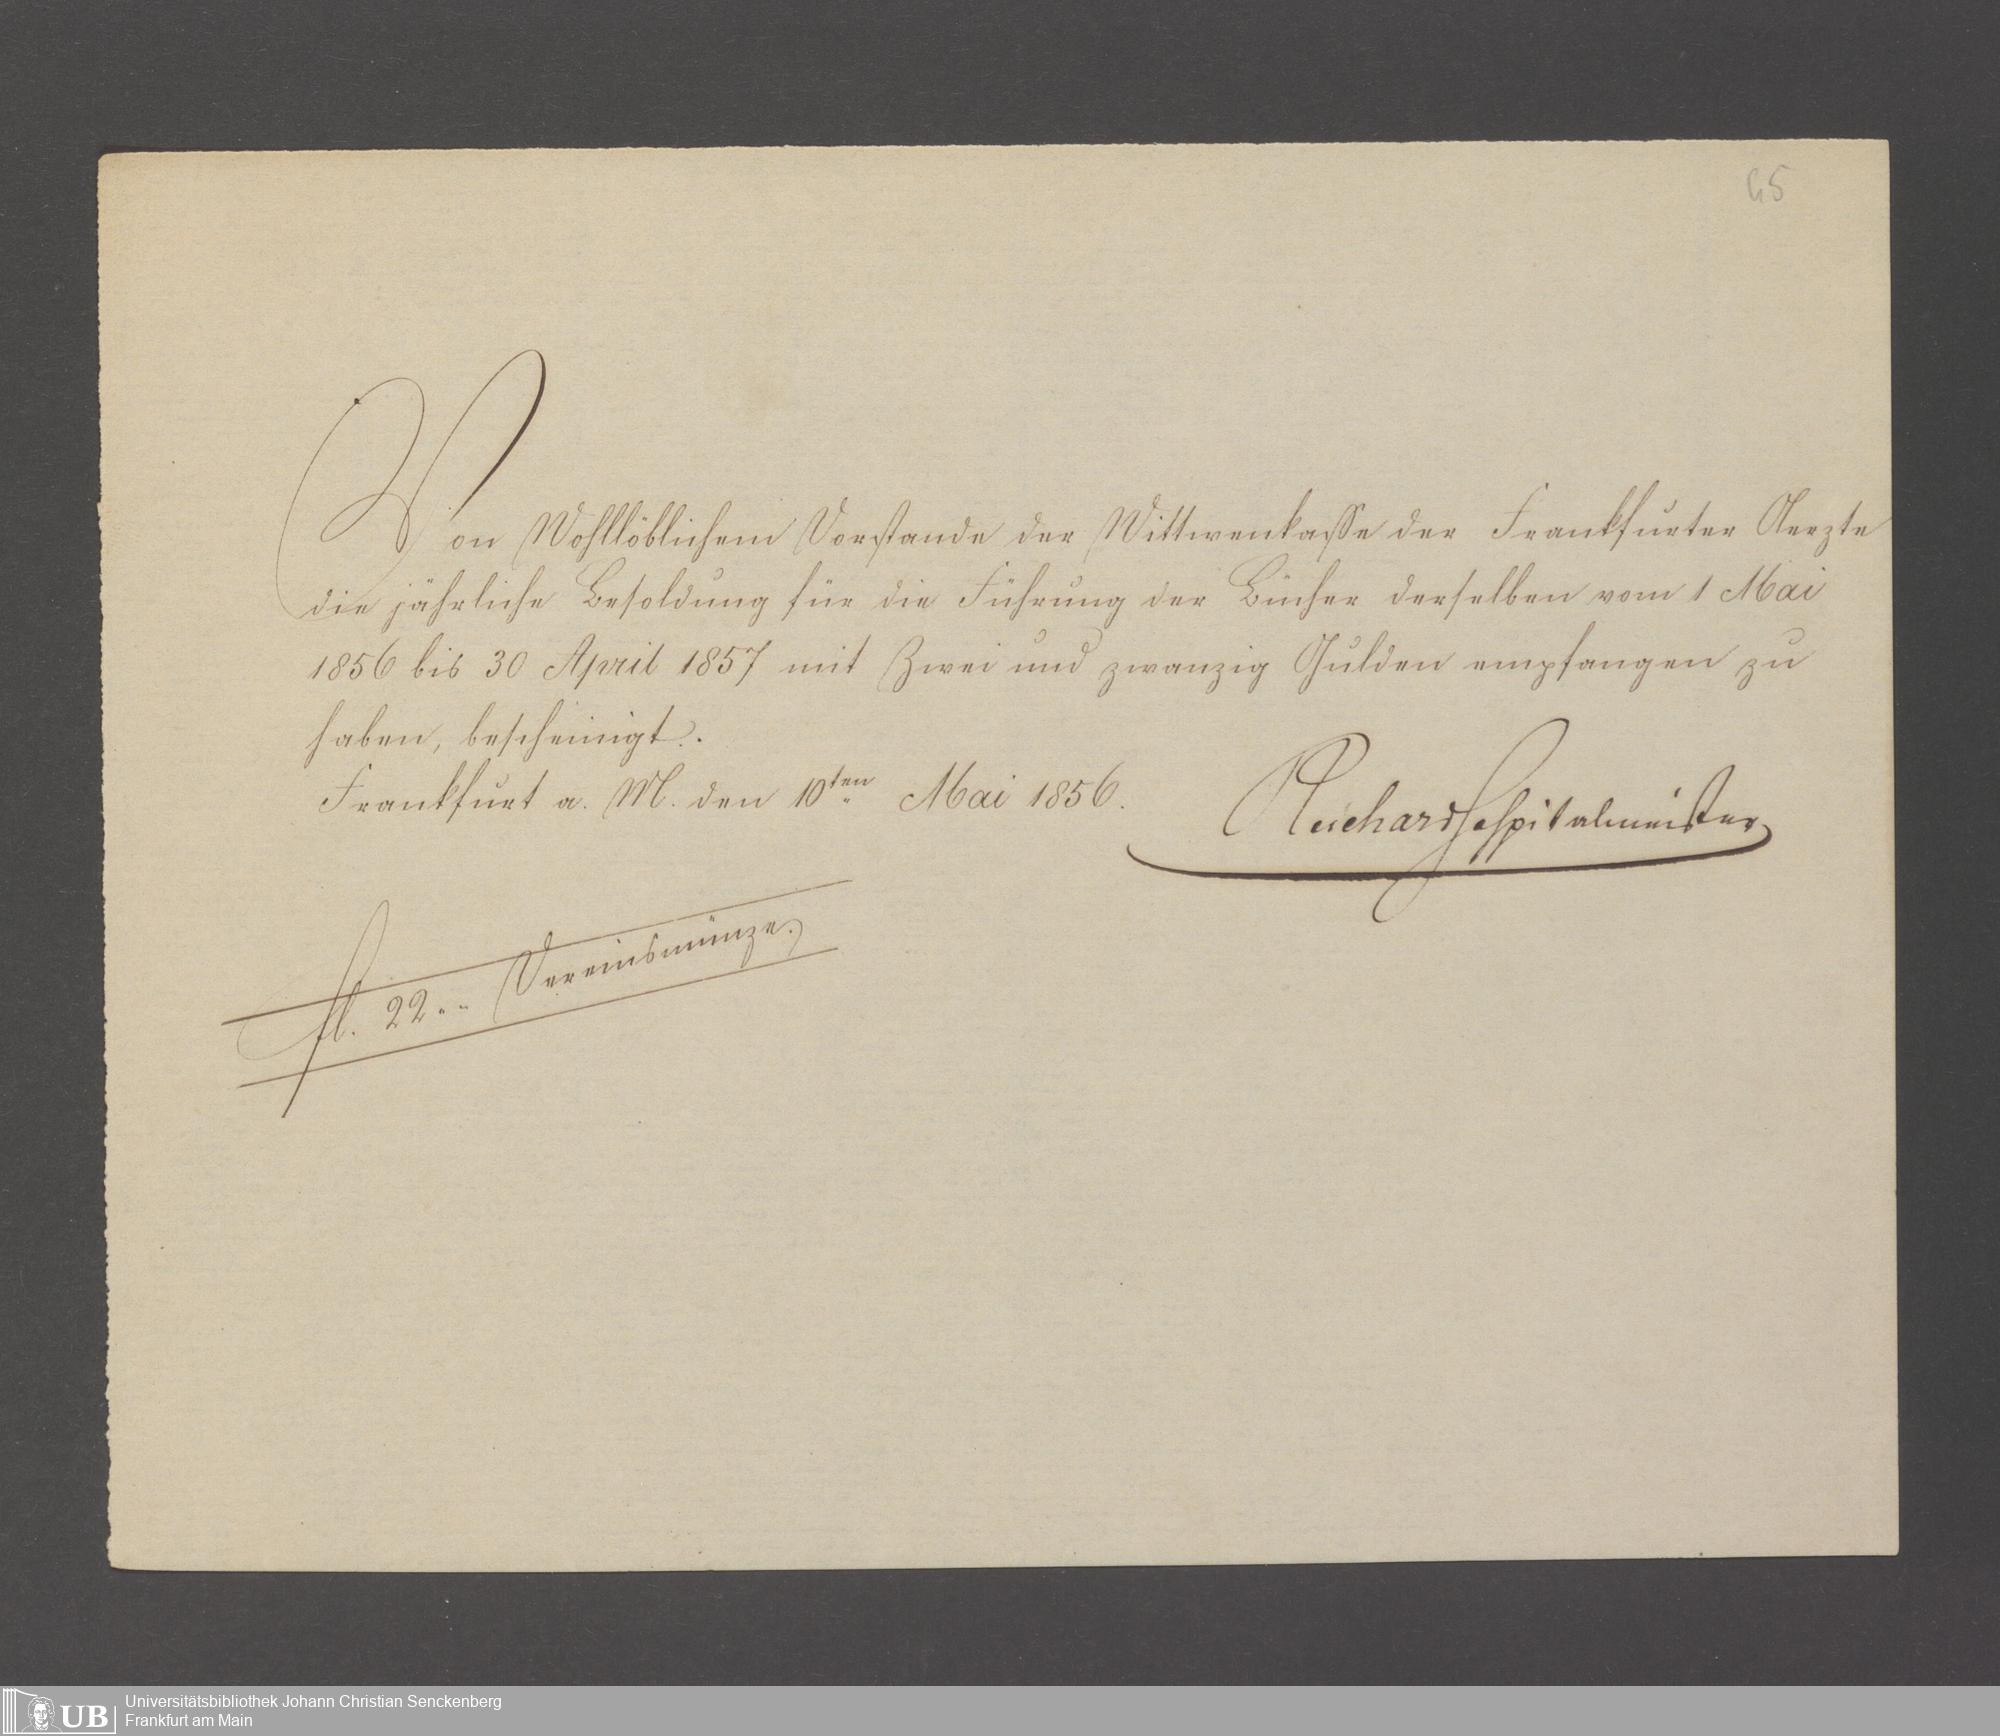 65
Von Wohllöblichem Vorstande der Wittwenkasse der Frankfurter Aerzte
die jährliche Besoldung für die Führung der Bücher derselben vom 1 Mai
1856 bis 30 April 1857 mit Zwei und zwanzig Gulden empfangen zu
haben, bescheinigt.
Frankfurt a. M. den 10ten Mai 1856.
Reichard Hospitalmeister
fl. 22 „ „ Vereinsmünze.
UB
Universitätsbibliothek Johann Christian Senckenberg
Frankfurt am Main